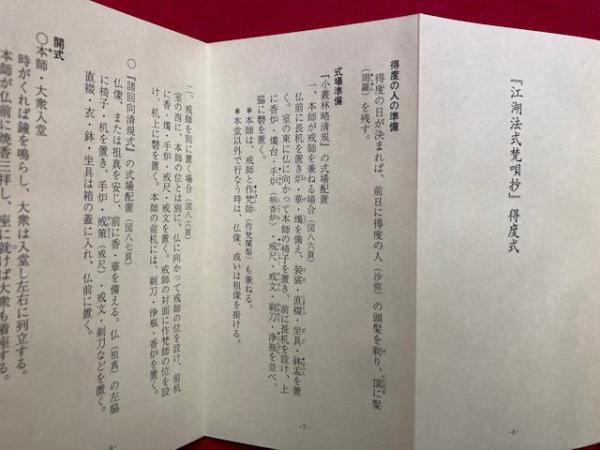 『江湖法式梵唄抄』得度式
-6-
得度の人の準備
得度の日が決まれば、前日に得度の人（沙弥）の頭髪を剃り、頂に髪
（周羅）を残す。
式場準備
『小叢林略清規』の式場配置
一、本師が戒師を兼ねる場合（図八六頁）
仏前に長机を置き炉・華・燭を備え、袈裟・直裰・坐具・鉢盂を置
く。室の東に仏に向かって本師の椅子を置き、前に長机を設け、上
に香炉・燭台・手炉（柄香炉）・戒尺・戒文・剃刀・浄瓶を並べ、
脇に磬を置く。
＊本師は、戒師と作梵師（作梵闍梨）も兼ねる。
＊本堂以外で行なう時は、仏像、或いは祖像を掛ける。
-7-
二、戒師を別に置く場合（図八六頁）
室の西に、本師の位とは別に、仏に向かって戒師の位を設け、前机
に香・燭・手炉・戒尺・戒文を置く。戒師の対面に作梵師の位を設
け、机上に磬を置く。本師の前机には、剃刀・浄瓶・香炉を置く。
○『諸回向清規式』の式場配置（図八七頁）
仏像、または祖真を安じ、前に香・華を備える。仏（祖真）の左脇
に椅子・机を置き、手炉・戒策（戒尺）・戒文・剃刀などを置く。
直裰・衣・鉢・坐具は箱の蓋に入れ、仏前に置く。
開式
○本師・大衆入堂
時がくれば鐘を鳴らし、大衆は入堂し左右に列立する。
本師が仏前に焼香三拝し、座に就けば大衆も着座する。